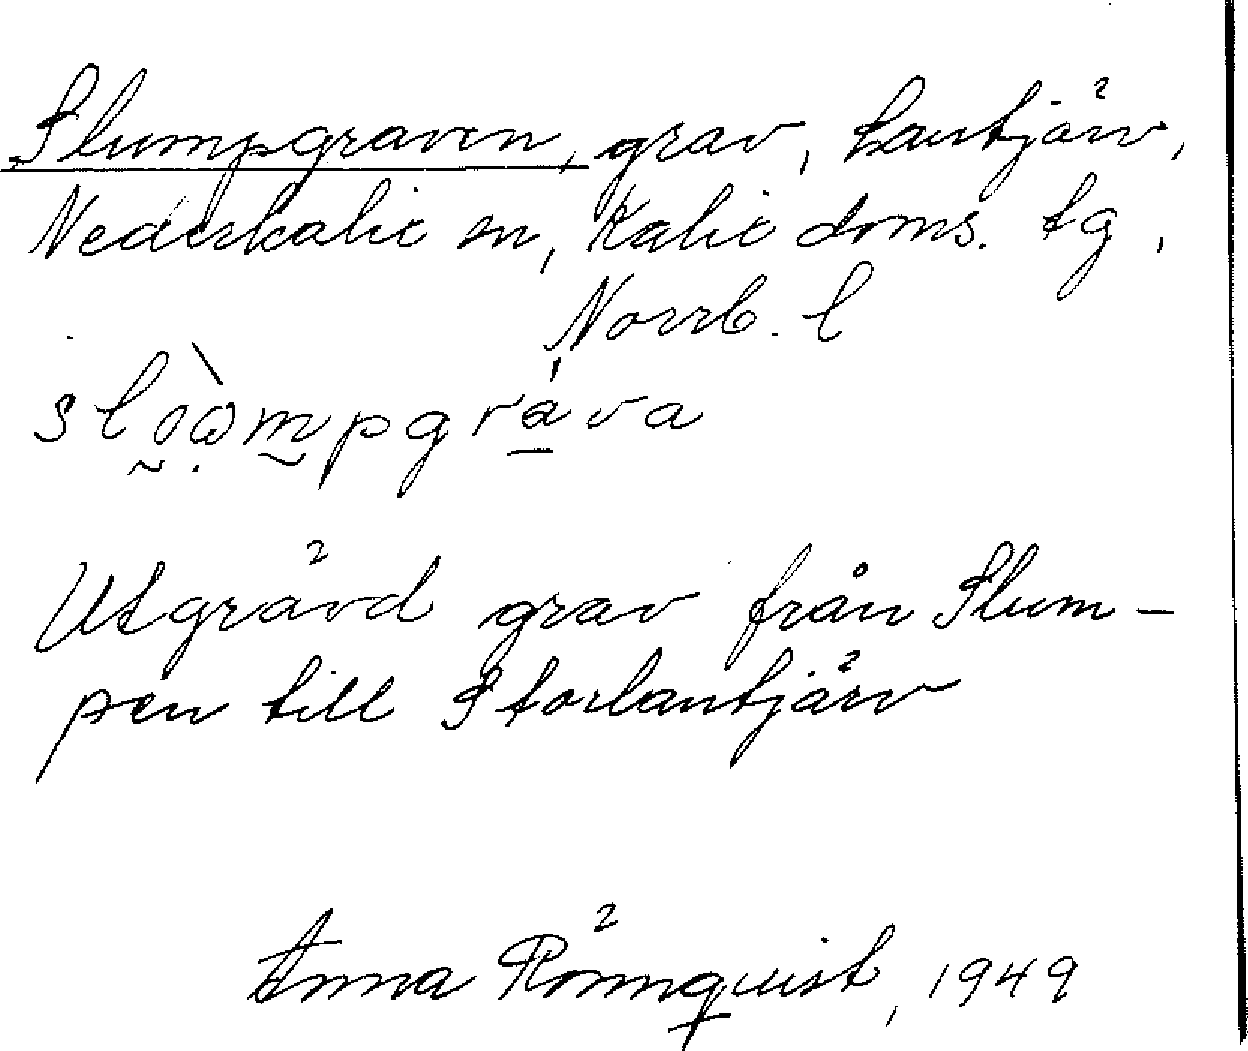 Slumpgraven, grav, Lantjärv,
Nederkalix sn, Kalix doms. tg,
Norrb. l
Utgrävd grav från Slum-
pen till Storlantjärv
Anna Rönnquist, 1949